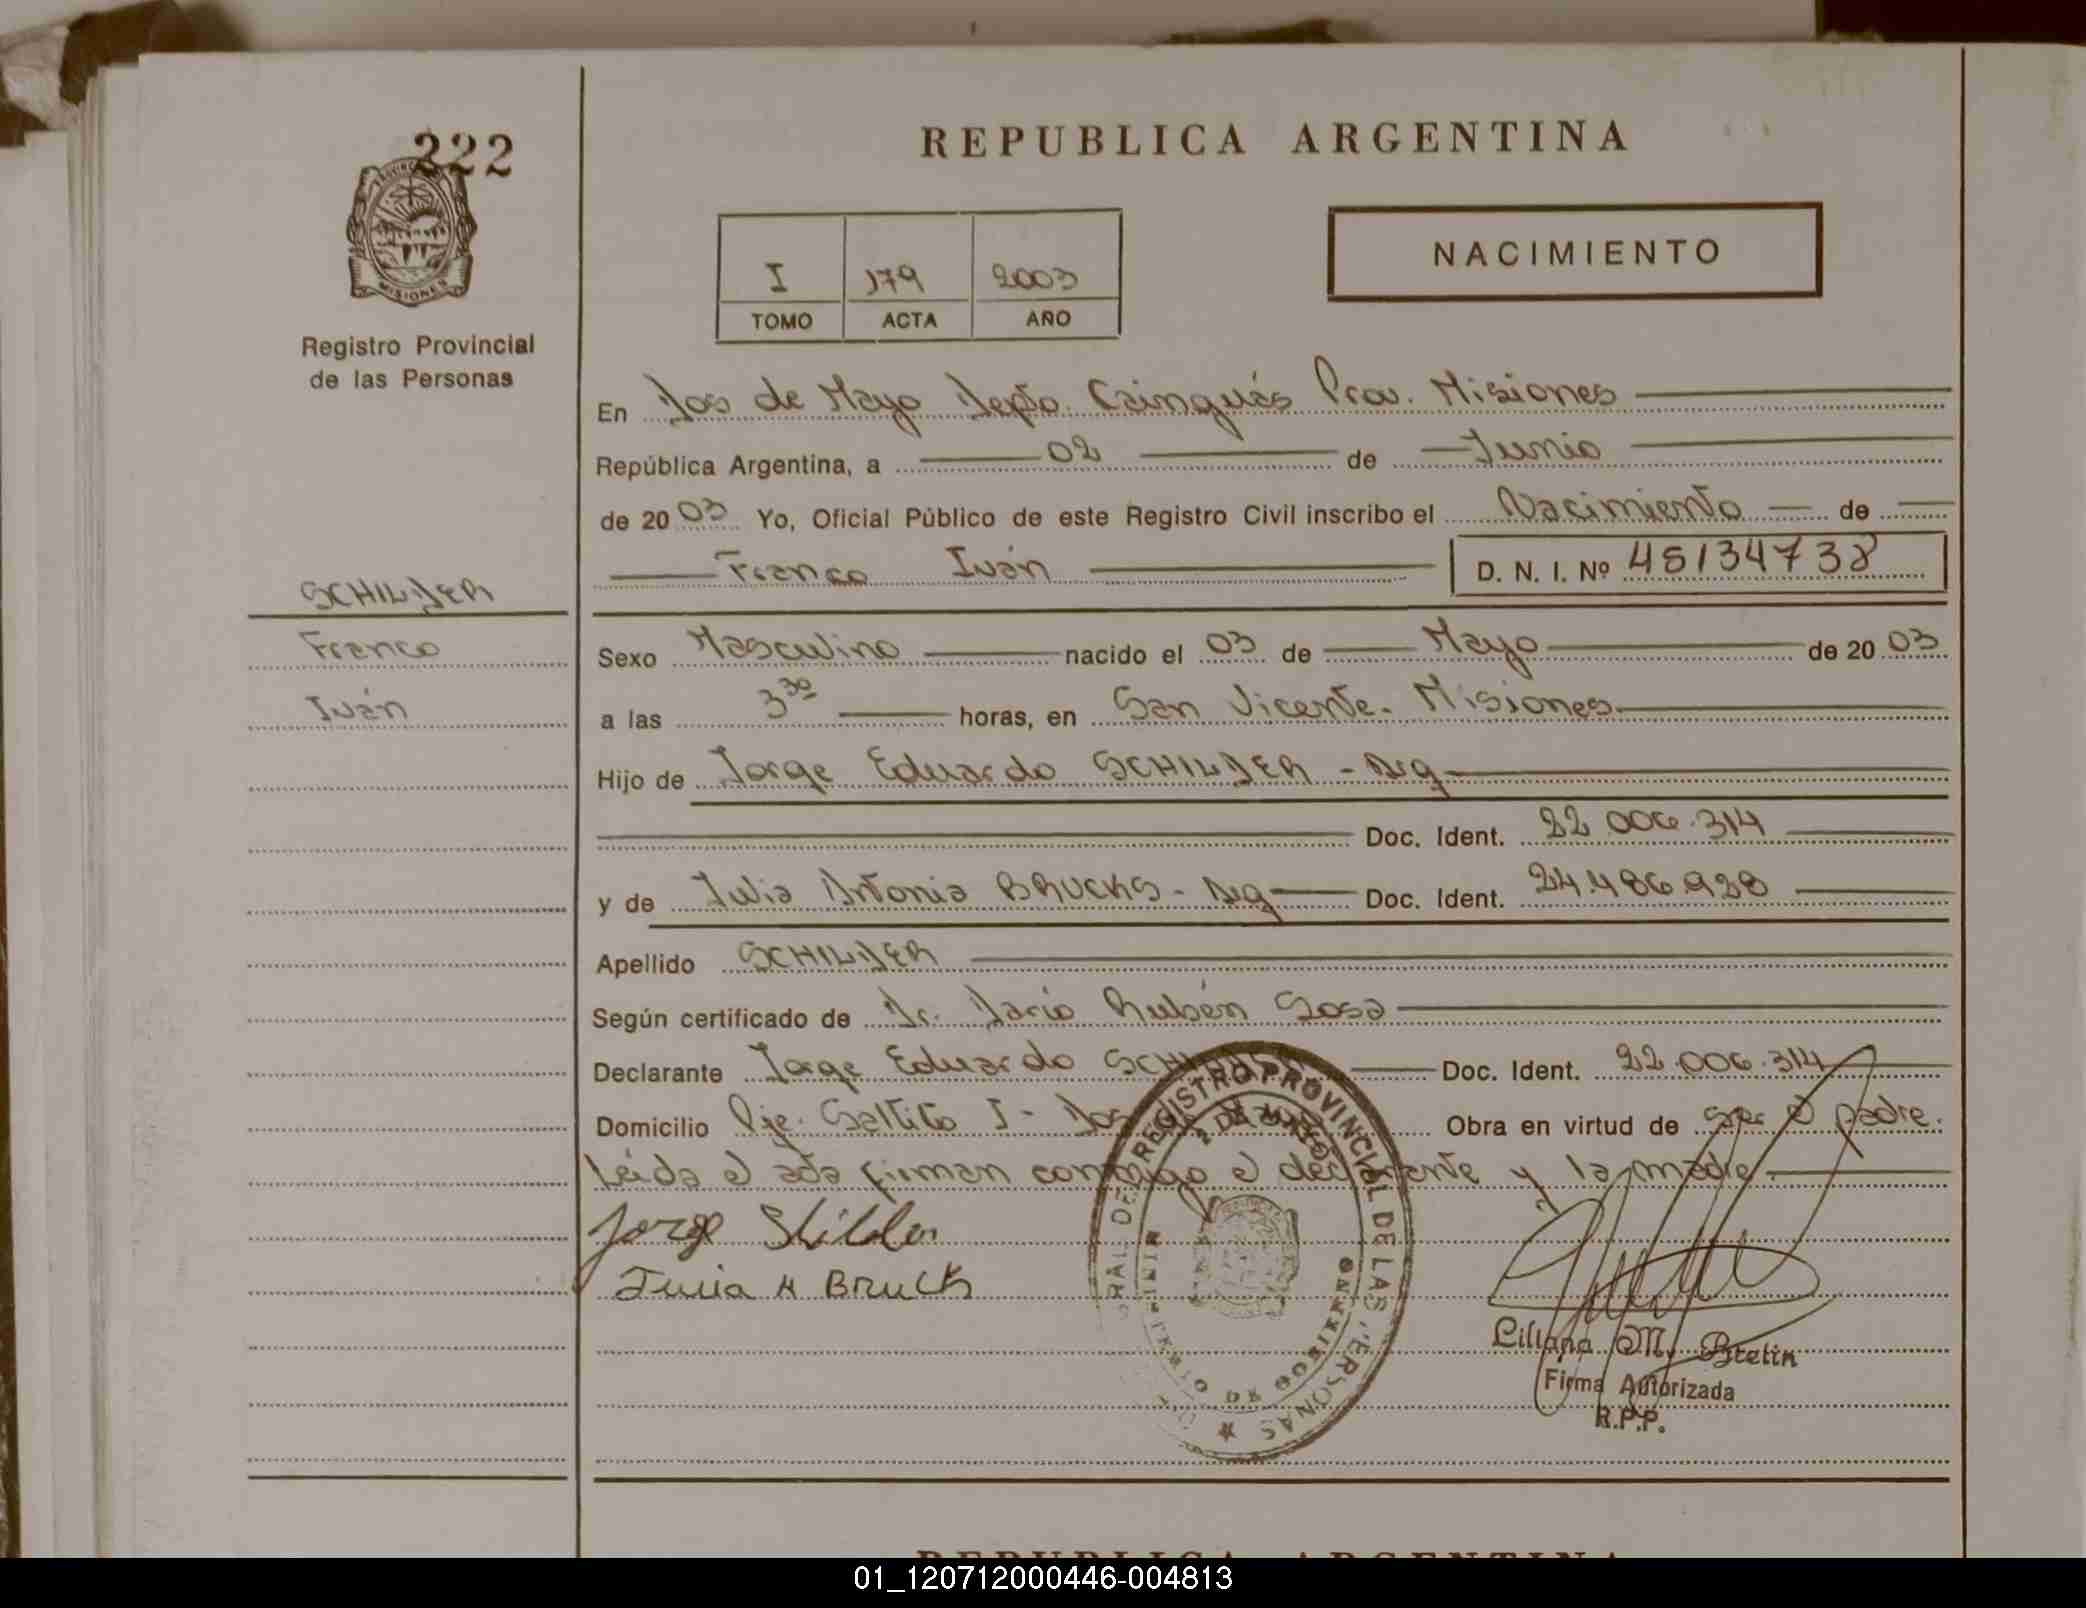 222
PROVINCIA
MISIONES
Registro Provincial
de las Personas
SCHILDER
Franco
Iván
REPUBLICA ARGENTINA
I 179 2003
TOMO ACTA AÑO
NACIMIENTO
En Dos de Mayo Depto. Cainguás Prov. Misiones
República Argentina, a 02 de Junio
de 2003 Yo, Oficial Público de este Registro Civil inscribo el Nacimiento de
Franco Iván D. N. I. Nº 45134738
Sexo Masculino nacido el 03 de Mayo de 2003
a las 3 30 horas, en San Vicente. Misiones
Hijo de Jorge Eduardo SCHILDER - Arg
Doc. Ident. 22.006.314
y de Julia Antonia BRUCKS - Arg Doc. Ident. 24.486.928
Apellido SCHILDER
Según certificado de Dr. Darío Rubén Sosa
Declarante Jorge Eduardo SCHILDER Doc. Ident. 22.006.314
Domicilio Pje. Saltito I - Dos de Mayo Obra en virtud de ser el padre.
Leída el acta firman conmigo el declarante y la madre
Jorge Schilder
Julia A Bruck
REGISTRO PROVINCIAL DE LAS PERSONAS
2 DE MAYO
Liliana M. Bretin
Firma Autorizada
R.P.P.
REPUBLICA ARGENTINA
01_120712000446-004813